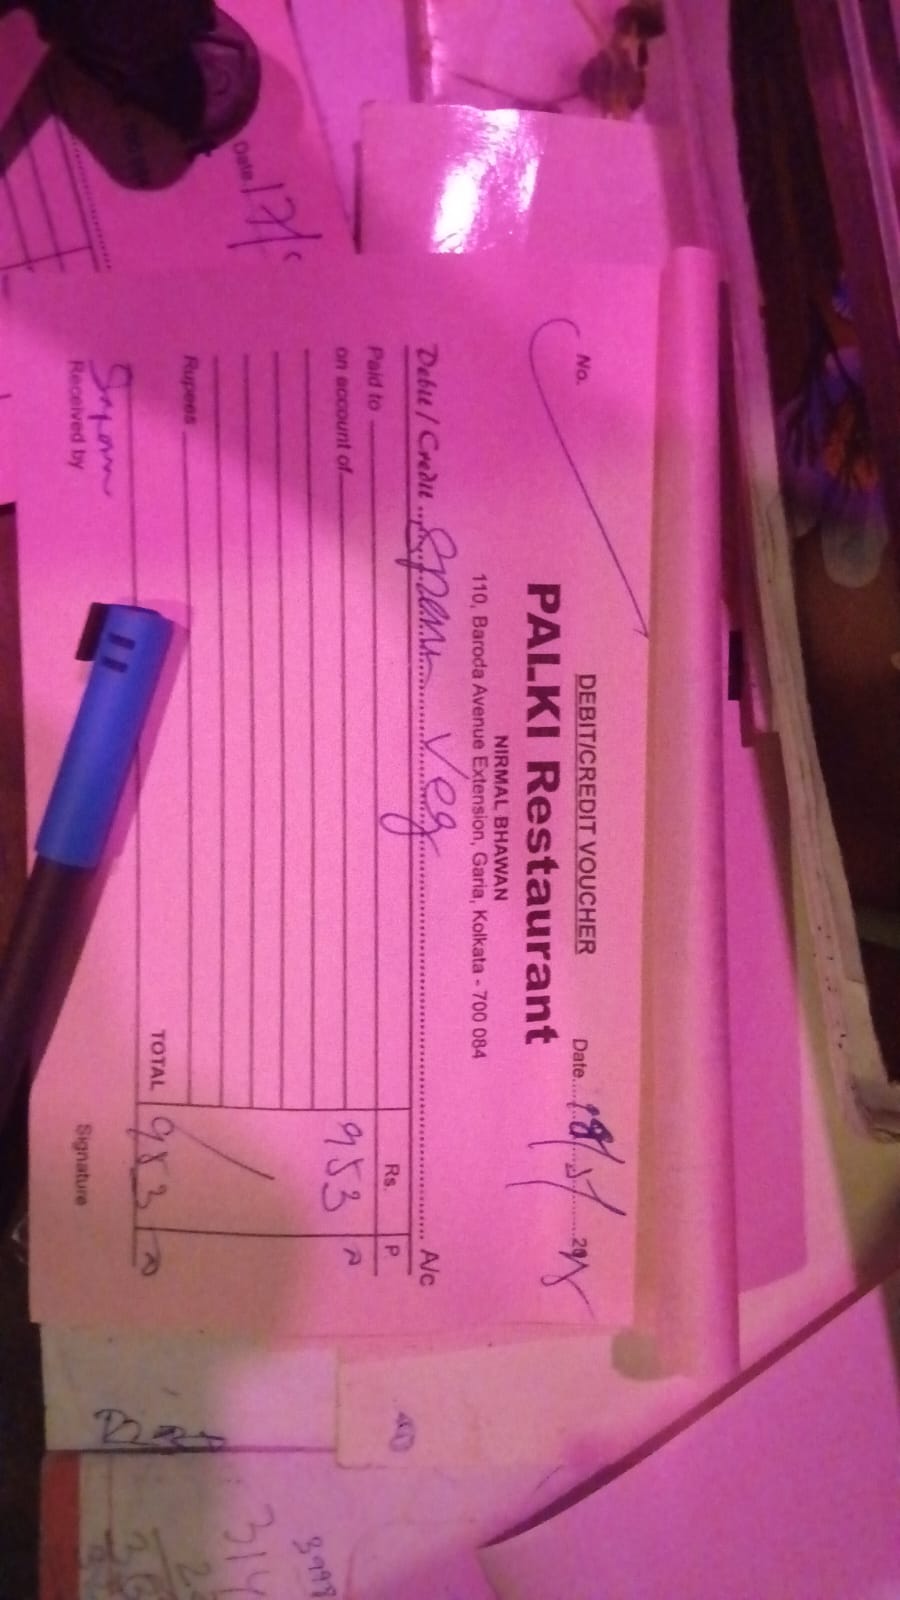 DEBIT/CREDIT VOUCHER
No.
Date 18/5/2025
PALKI Restaurant
NIRMAL BHAWAN
110, Baroda Avenue Extension, Garia, Kolkata - 700 084
Debit / Credit Veg A/c
Paid to Rs. P.
on account of 953
Rupees
TOTAL 953
Received by Signature
Date 17/
3998
314